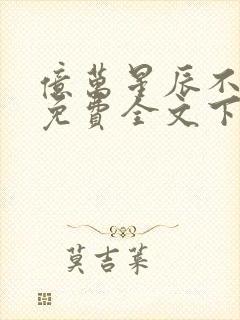 億萬星辰不
免費全文下
莫吉萊